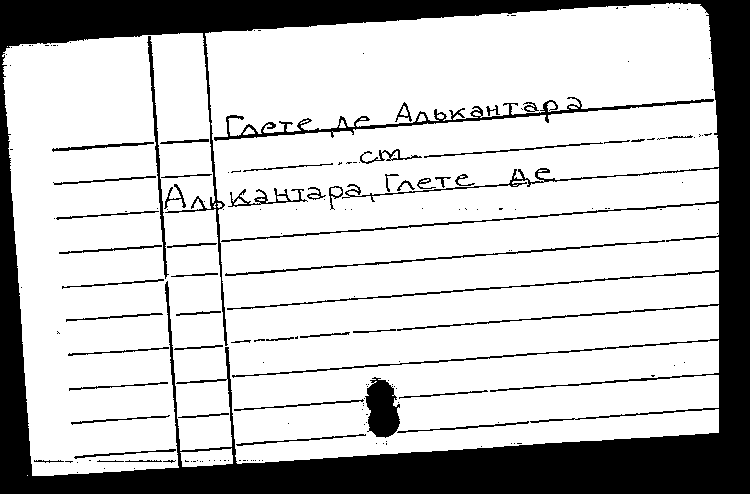 Глете де Алькантара
см
Алькантара, Глете де